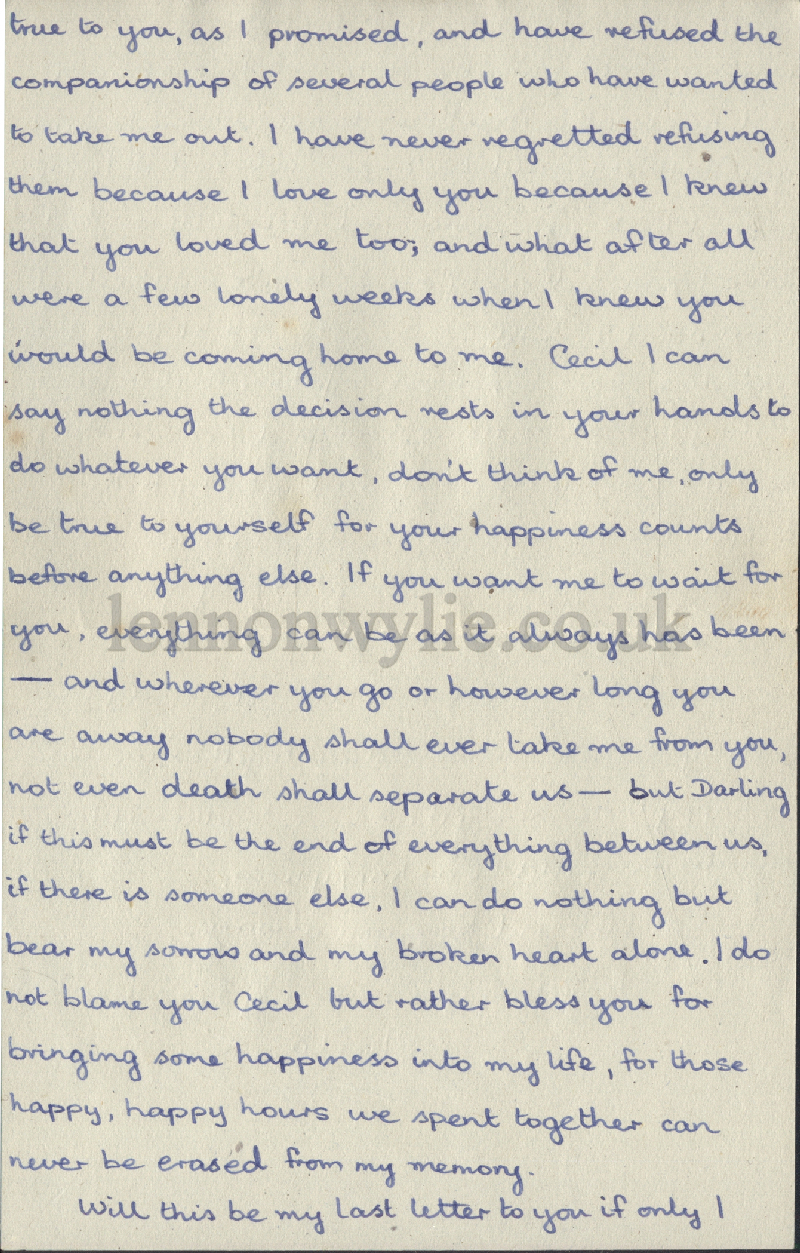 true to you, as I promised, and have refused the
companionship of several people who have wanted
to take me out. I have never regretted refusing
them because I love only you because I knew
that you loved me too; and what after all
were a few lonely weeks when I knew you
would be coming home to me. Cecil I can
say nothing the decision rests in your hands to
do whatever you want, don't think of me, only
be true to yourself for your happiness counts
before anything else. If you want me to wait for
you, everything can be as it always has been
— and wherever you go or however long you
are away nobody shall ever take me from you,
not even death shall separate us — but Darling
if this must be the end of everything between us,
if there is someone else, I can do nothing but
bear my sorrow and my broken heart alone. I do
not blame you Cecil but rather bless you for
bringing some happiness into my life, for those
happy, happy hours we spent together can
never be erased from my memory.
Will this be my last letter to you if only I
lennonwylie.co.uk